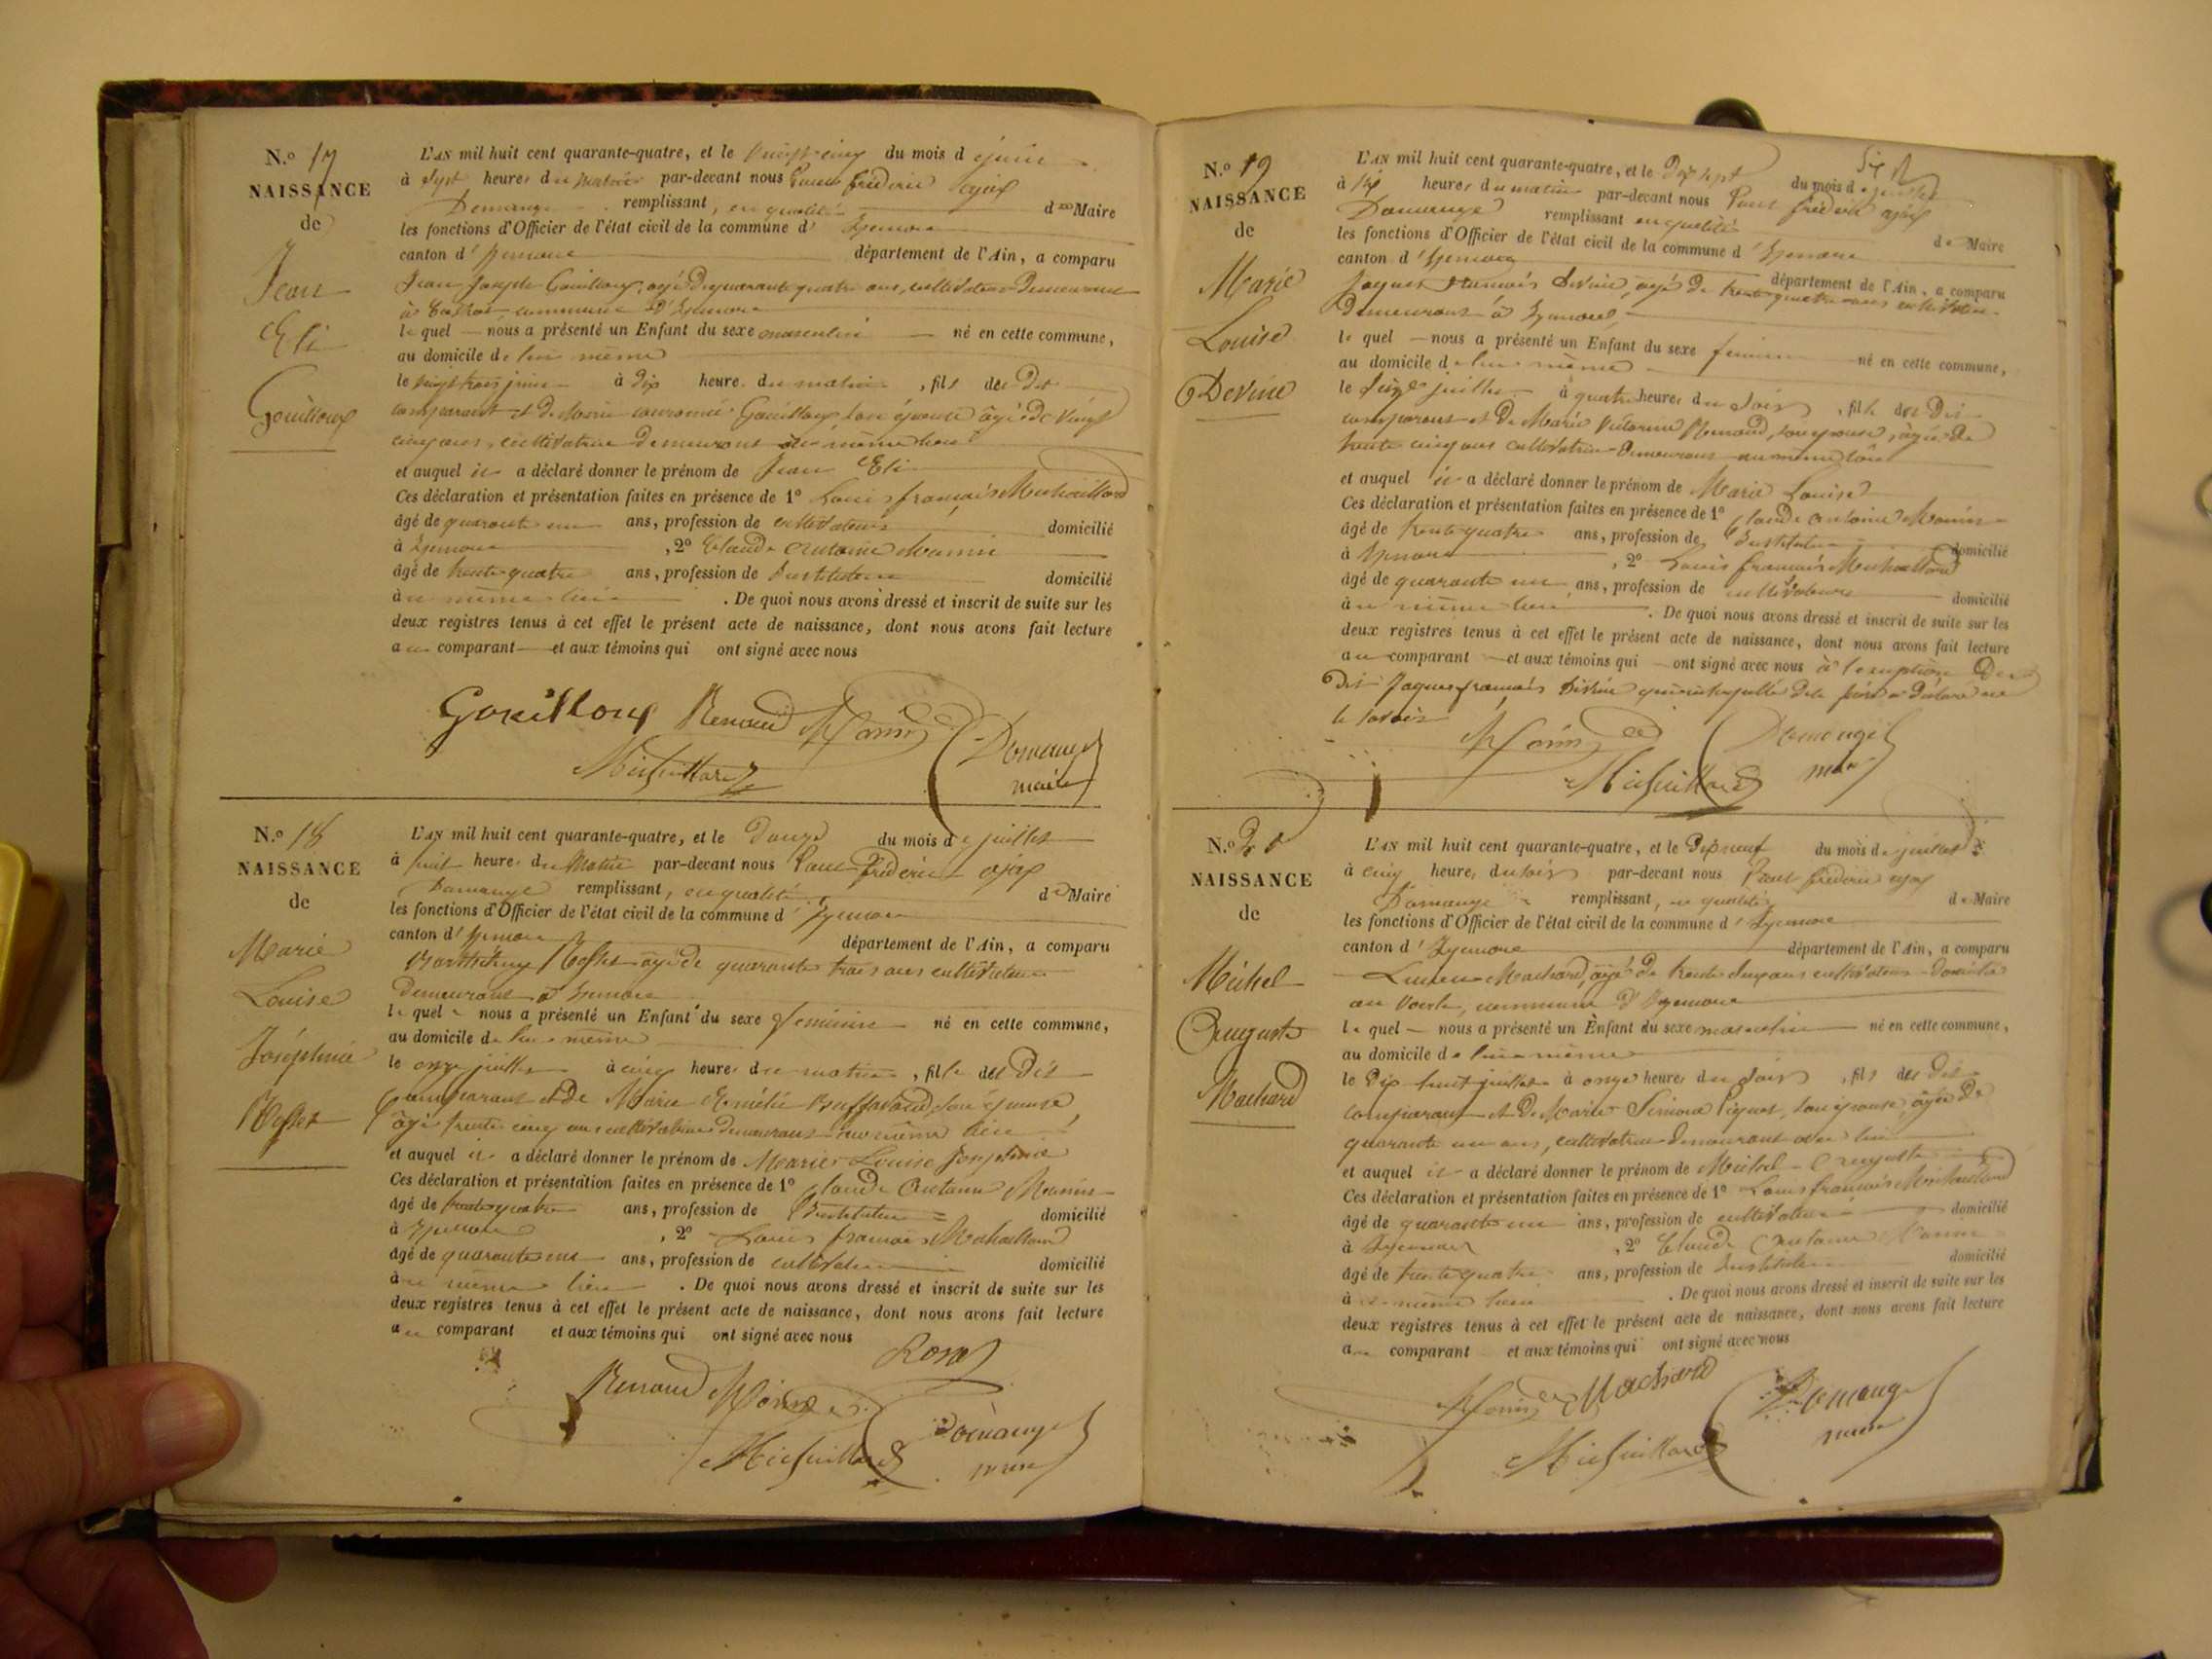 N.º 17
NAISSANCE
de
Jean
Eli
Gouilloux
L'AN mil huit cent quarante-quatre, et le vingt cinq du mois de juin
à sept heures du matin par-devant nous Paul frédéric ajax
Domange remplissant, en qualité de Maire
les fonctions d'Officier de l'état civil de la commune d'Izernore
canton d'Izernore département de l'Ain, a comparu
Jean Joseph Gouilloux, agé de quarante quatre ans, cultivateur demeurant
à commune d'Izernore
lequel nous a présenté un Enfant du sexe masculin né en cette commune,
au domicile de lui même
le vingt trois juin à dix heures du matin, fils des dit
comparant et de Marie Gouilloux son épouse âgée de vingt
cinq ans, cultivatrice demeurant au même lieu
et auquel il a déclaré donner le prénom de Jean Eli
Ces déclaration et présentation faites en présence de 1º Louis françois Michaillard
âgé de quarante un ans, profession de cultivateur domicilié
à Izernore, 2º Claude antoine Monin
âgé de trente quatre ans, profession de Instituteur domicilié
au même lieu. De quoi nous avons dressé et inscrit de suite sur les
deux registres tenus à cet effet le présent acte de naissance, dont nous avons fait lecture
au comparant et aux témoins qui ont signé avec nous
Gouilloux Renaud Monin Domange
Michaillard maire
N.º 18
NAISSANCE
de
Marie
Louise
Joséphine
L'AN mil huit cent quarante-quatre, et le douze du mois de juillet
à huit heures du matin par-devant nous Paul frédéric ajax
Domange remplissant, en qualité de Maire
les fonctions d'Officier de l'état civil de la commune d'Izernore
canton d'Izernore département de l'Ain, a comparu
agé de quarante trois ans cultivateur
demeurant à Izernore
lequel nous a présenté un Enfant du sexe féminin né en cette commune,
au domicile de lui même
le onze juillet à cinq heures du matin, fille des dit
comparant et de Marie son épouse,
âgée trente cinq ans cultivatrice demeurant au même lieu
et auquel il a déclaré donner le prénom de Marie Louise Joséphine
Ces déclaration et présentation faites en présence de 1º Claude Antoine Monin
âgé de trente quatre ans, profession de Instituteur domicilié
à Izernore, 2º Louis françois Michaillard
âgé de quarante un ans, profession de cultivateur domicilié
au même lieu. De quoi nous avons dressé et inscrit de suite sur les
deux registres tenus à cet effet le présent acte de naissance, dont nous avons fait lecture
au comparant et aux témoins qui ont signé avec nous
Renaud Monin
Michaillard Domange
maire
N.º 19
NAISSANCE
de
Marie
Louise
Devine
L'AN mil huit cent quarante-quatre, et le dix sept du mois de juillet
à six heures du matin par-devant nous Paul frédéric ajax
Domange remplissant en qualité de Maire
les fonctions d'Officier de l'état civil de la commune d'Izernore
canton d'Izernore département de l'Ain, a comparu
Jaques françois Devine, agé de trente quatre ans cultivateur
demeurant à Izernore,
lequel nous a présenté un Enfant du sexe féminin né en cette commune,
au domicile de lui même
le seize juillet à quatre heures du soir, fille des dit
comparant et de Marie Victorine Renaud, son épouse, agée de
trente cinq ans cultivatrice demeurant au même lieu
et auquel il a déclaré donner le prénom de Marie Louise
Ces déclaration et présentation faites en présence de 1º Claude antoine Monin
âgé de trente quatre ans, profession de Instituteur domicilié
à Izernore, 2º Louis françois Michaillard
âgé de quarante un ans, profession de cultivateur domicilié
au même lieu. De quoi nous avons dressé et inscrit de suite sur les
deux registres tenus à cet effet le présent acte de naissance, dont nous avons fait lecture
au comparant et aux témoins qui ont signé avec nous à l'exception du
dit Jaques françois Devine qui de le faire a déclaré ne
le savoir
Monin Domange
Michaillard maire
N.º 20
NAISSANCE
de
Michel
Auguste
Machard
L'AN mil huit cent quarante-quatre, et le dix neuf du mois de juillet
à cinq heures du soir par-devant nous Paul frédéric ajax
Domange remplissant, en qualité de Maire
les fonctions d'Officier de l'état civil de la commune d'Izernore
canton d'Izernore département de l'Ain, a comparu
Machard, âgé de trente ans cultivateur
au commune d'Izernore
lequel nous a présenté un Enfant du sexe masculin né en cette commune,
au domicile de lui même
le dix huit juillet à onze heures du soir, fils des dit
comparant et de Marie son épouse agée de
quarante un ans, cultivatrice demeurant
et auquel il a déclaré donner le prénom de Michel Auguste
Ces déclaration et présentation faites en présence de 1º Louis françois Michaillard
âgé de quarante un ans, profession de cultivateur domicilié
à Izernore, 2º Claude Antoine Monin
âgé de trente quatre ans, profession de Instituteur domicilié
au même lieu. De quoi nous avons dressé et inscrit de suite sur les
deux registres tenus à cet effet le présent acte de naissance, dont nous avons fait lecture
au comparant et aux témoins qui ont signé avec nous
Monin Machard Domange
Michaillard maire